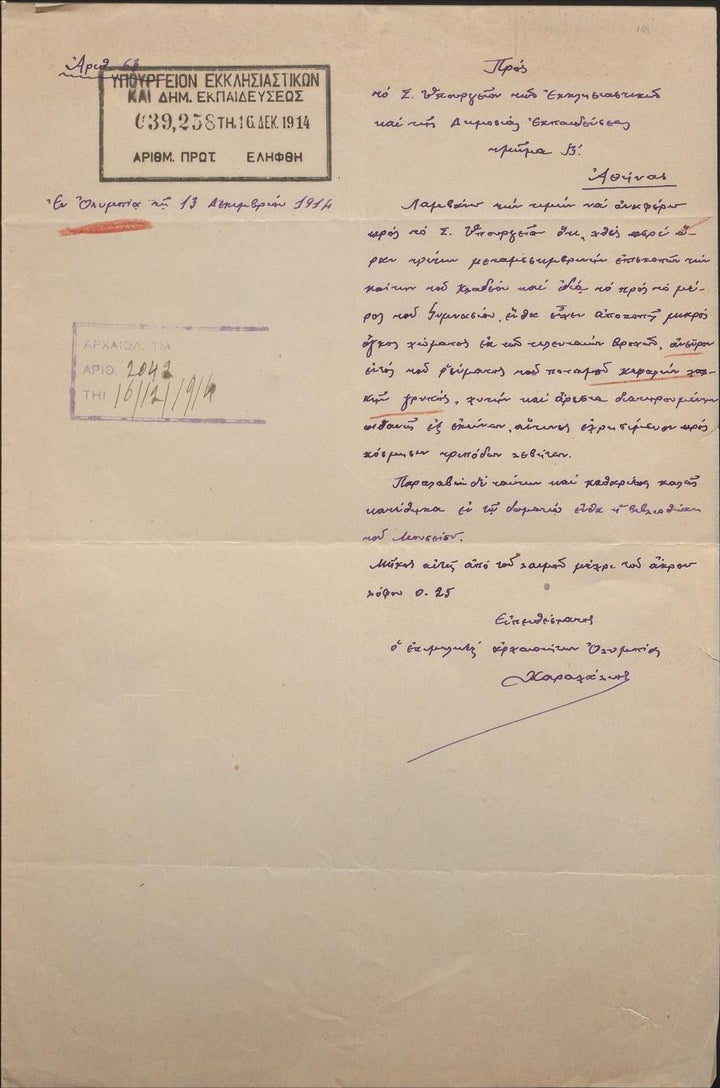 163
Ἀριθ 63
ΥΠΟΥΡΓΕΙΟΝ ΕΚΚΛΗΣΙΑΣΤΙΚΩΝ
ΚΑΙ ΔΗΜ. ΕΚΠΑΙΔΕΥΣΕΩΣ
039,258 ΤΗ. 16. ΔΕΚ. 1914
ΑΡΙΘΜ. ΠΡΩΤ. ΕΛΗΦΘΗ
Ἐν Ὀλυμπίᾳ τῇ 13 Δεκεμβρίου 1914
ΑΡΧΑΙΟΛ. ΤΜ
ΑΡΙΘ. 2042
ΤΗΙ 16/12/914
Πρός
τό Σ. Ὑπουργεῖον τῶν Ἐκκλησιαστικῶν
καί τῆς Δημοσίας Ἐκπαιδεύσεως
τμῆμα Β΄.
Ἀθήνας
Λαμβάνω τήν τιμήν νά ἀναφέρω
πρός τό Σ. Ὑπουργεῖον ὅτι, χθές περί ὥ-
ραν τρίτην μεταμεσημβρινήν ἐπισκοπῶν τήν
κοίτην τοῦ Κλαδέου καί ἰδίᾳ τό πρός τό μέ-
ρος τοῦ Γυμνασίου, ἔνθα εἶχεν ἀποκοπῆ μικρός
ὄγκος χώματος ἐκ τῶν τελευταίων βροχῶν, ἀνεῦρον
ἐντός τοῦ ῥεύματος τοῦ ποταμοῦ κεφαλήν χαλ-
κῆν γρυπός, χυτήν καί ἄριστα διατηρουμένην
πιθανῶς ἐξ ἐκείνων, αἵτινες ἐχρησίμευον πρός
κόσμησιν τριπόδων λεβήτων.
Παραλαβών δέ ταύτην καί καθαρίσας καλῶς
κατέθηκα ἐν τῷ δωματίῳ ἔνθα ἡ βιβλιοθήκη
τοῦ Μουσείου.
Μῆκος αὐτῆς ἀπό τοῦ λαιμοῦ μέχρι τοῦ ἄκρου
λόφου 0.25
Εὐπειθέστατος
ὁ ἐπιμελητής ἀρχαιοτήτων Ὀλυμπίας